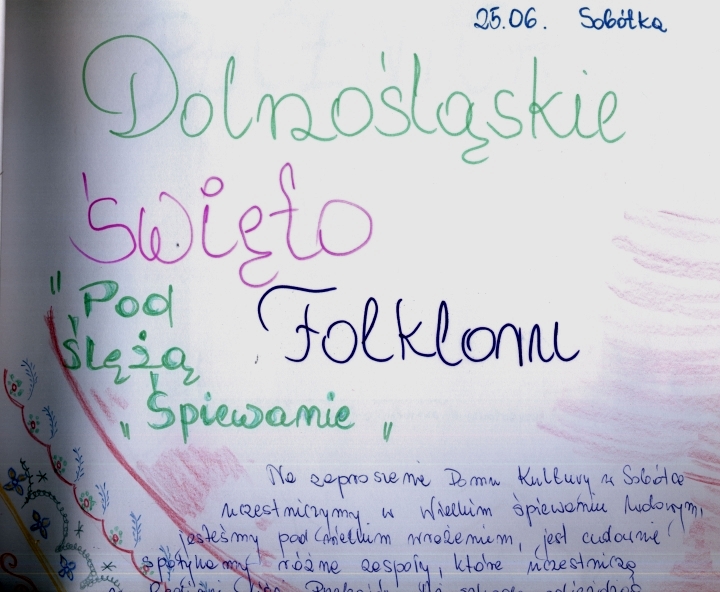 25.06. Sobótka
Dolnośląskie
Święto
"Pod
Ślężą
Folkloru
„Śpiewanie"
Na zaproszenie Domu Kultury w Sobótce
uczestniczymy w Wielkim Śpiewaniu ludowym,
jesteśmy pod wielkim wrażeniem, jest cudownie
spotykamy różne zespoły, które uczestniczą